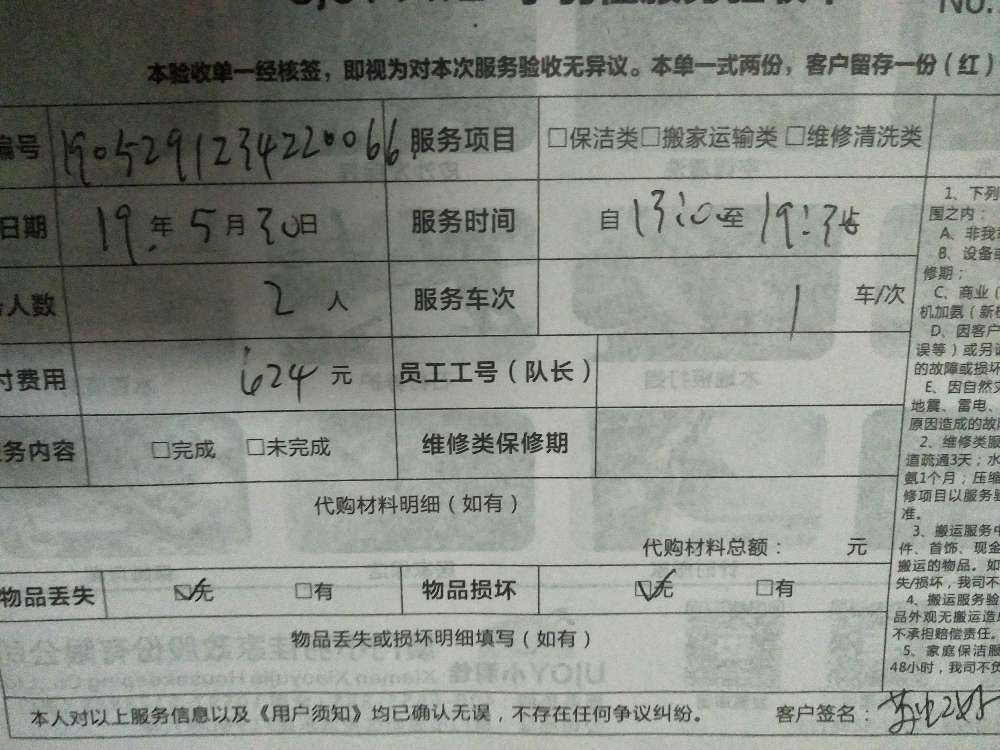 No.
本验收单一经核签，即视为对本次服务验收无异议。本单一式两份，客户留存一份（红）
编号 1905291234220066 服务项目 □保洁类□搬家运输类 □维修清洗类
日期 19年5月30日 服务时间 自13:00至19:34
人数 2人 服务车次 1 车/次
付费用 624元 员工工号（队长）
务内容 □完成 □未完成 维修类保修期
代购材料明细（如有）
代购材料总额： 元
物品丢失 ☑无 □有 物品损坏 ☑无 □有
物品丢失或损坏明细填写（如有）
本人对以上服务信息以及《用户须知》均已确认无误，不存在任何争议纠纷。 客户签名：
1、下列
围之内：
A、非我
B、设备或
修期；
C、商业（
机加氨（新
D、因客户
误等）或另
的故障或损坏
E、因自然灾
地震、雷电、
原因造成的故
2、维修类服
道疏通3天；水
氨1个月；压缩
修项目以服务验
准。
3、搬运服务中
件、首饰、现金
搬运的物品。如
失/损坏，我司不
4、搬运服务验
品外观无搬运造成
不承担赔偿责任。
5、家庭保洁服
48小时，我司不负